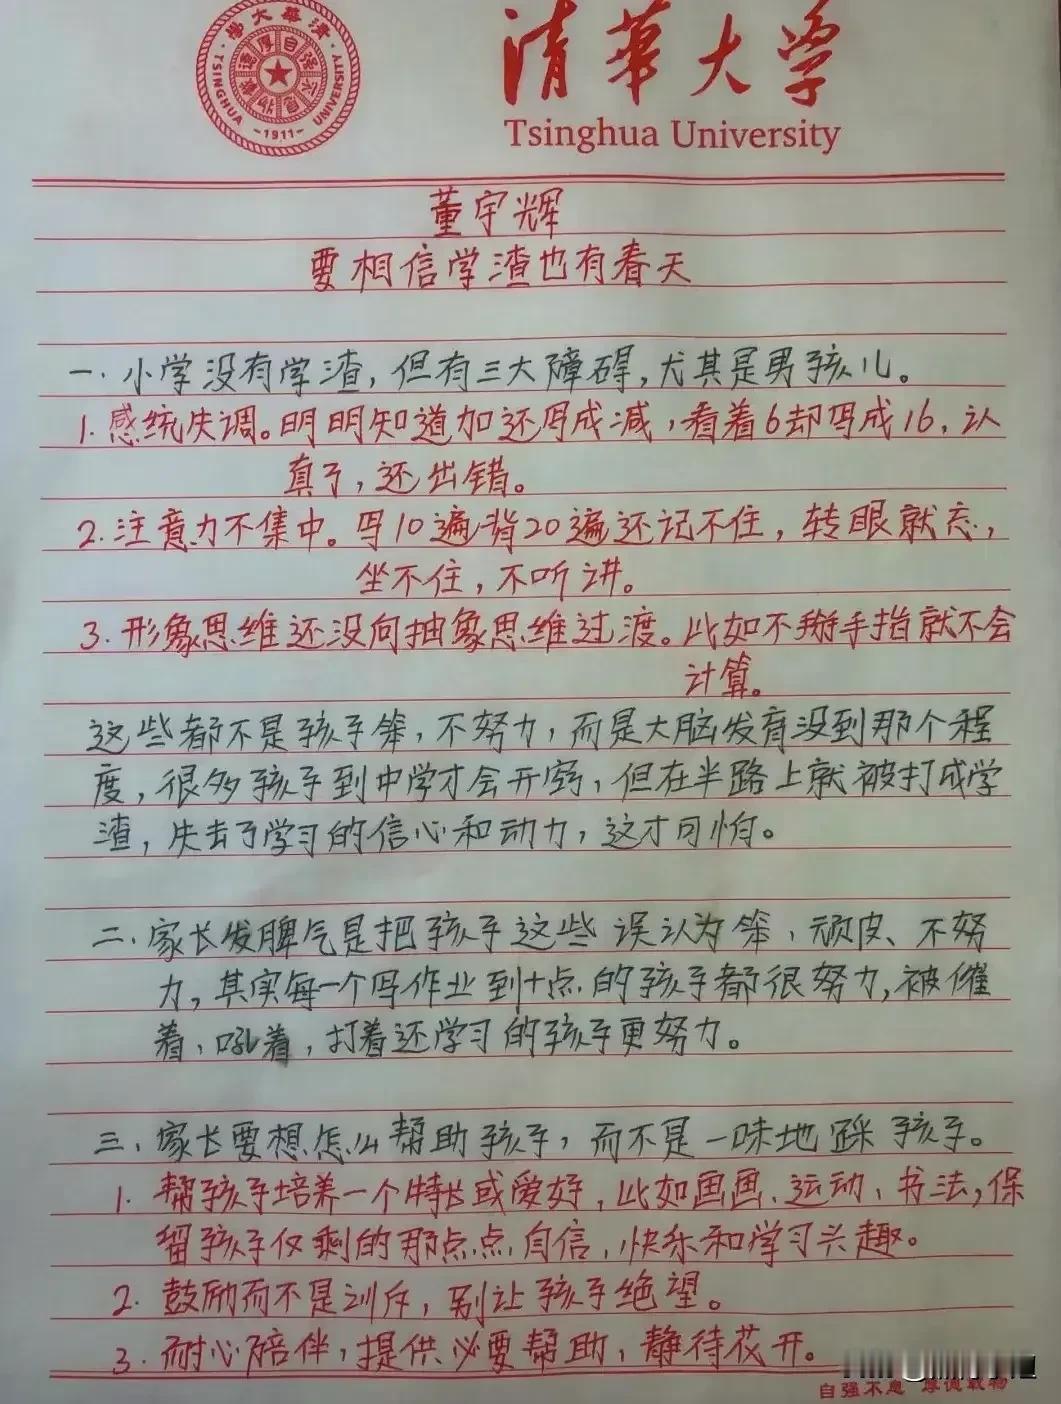 清華大学
Tsinghua University
TSINGHUA UNIVERSITY
-1911-
董宇辉
要相信学渣也有春天
一.小学没有学渣,但有三大障碍,尤其是男孩儿。
1.感统失调。明明知道加还写成减,看着6却写成16,认
真了,还出错。
2.注意力不集中。写10遍背20遍还记不住,转眼就忘,
坐不住,不听讲。
3.形象思维还没向抽象思维过渡。比如不掰手指就不会
计算。
这些都不是孩子笨,不努力,而是大脑发育没到那个程
度,很多孩子到中学才会开窍,但在半路上就被打成学
渣,失去了学习的信心和动力,这才可怕。
二、家长发脾气是把孩子这些误认为笨、顽皮、不努
力,其实每一个写作业到十点的孩子都很努力,被催
着、吼着,打着还学习的孩子更努力。
三、家长要想怎么帮助孩子,而不是一味地踩孩子。
1.帮孩子培养一个特长或爱好,比如画画、运动、书法,保
留孩子仅剩的那点点自信、快乐和学习兴趣。
2.鼓励而不是训斥,别让孩子绝望。
3.耐心陪伴,提供必要帮助,静待花开。
自强不息 厚德载物